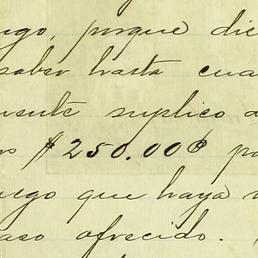 ugo, porque die
saber hasta cua
mente suplico a
os $250.00 po
uego que haya
aso ofrecido.